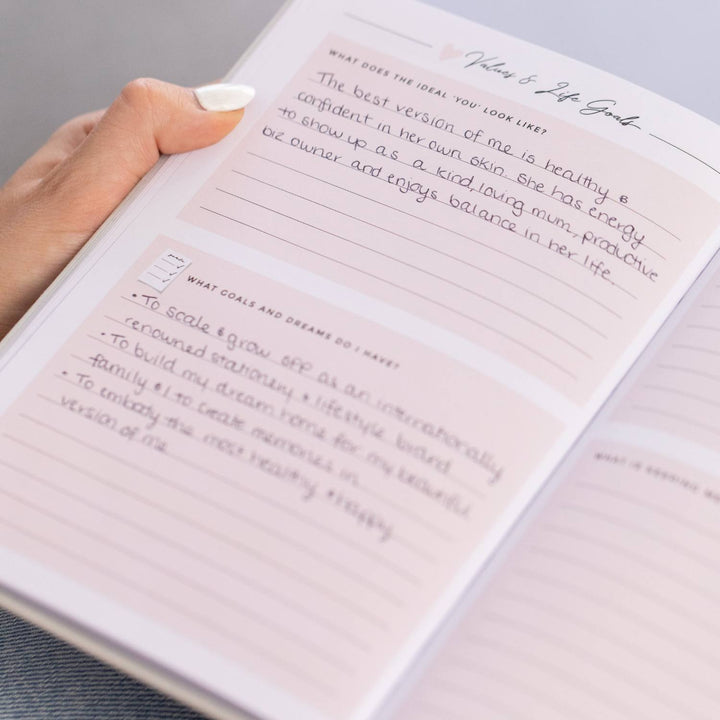 Values & Life Goals
WHAT DOES THE IDEAL 'YOU' LOOK LIKE?
The best version of me is healthy &
confident in her own skin. She has energy
to show up as a kind, loving mum, productive
biz owner and enjoys balance in her life.
goals
WHAT GOALS AND DREAMS DO I HAVE?
• To scale & grow OPP as an internationally
renowned stationery & lifestyle brand
• To build my dream home for my beautiful
family & I to create memories in
• To embody the most healthy & happy
version of me
WHAT IS